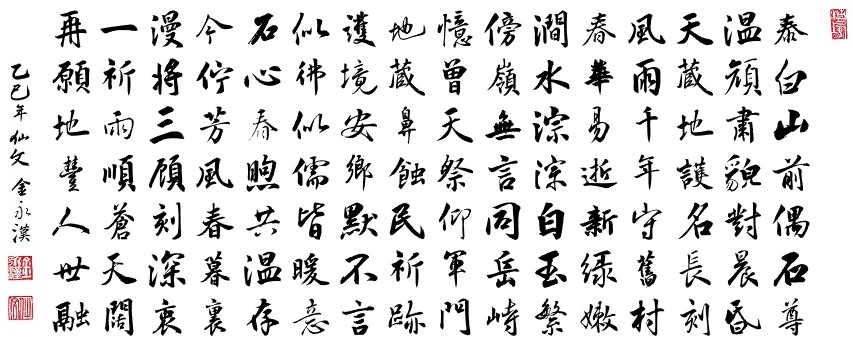 泰白山前偶石尊
温顔肅貌對晨昏
天藏地護名長刻
風雨千年守舊村
春華易逝新綠嫩
澗水淙淙白玉繁
傍嶺無言同岳峙
憶曾天祭仰軍門
地藏鼻蝕民祈跡
護境安鄉默不言
似彿似儒皆暖意
石心春煦共温存
今佇芳風春暮裏
漫將三顧刻深衷
一祈雨順蒼天闊
再願地豐人世融
乙巳年 仙文 金永漢